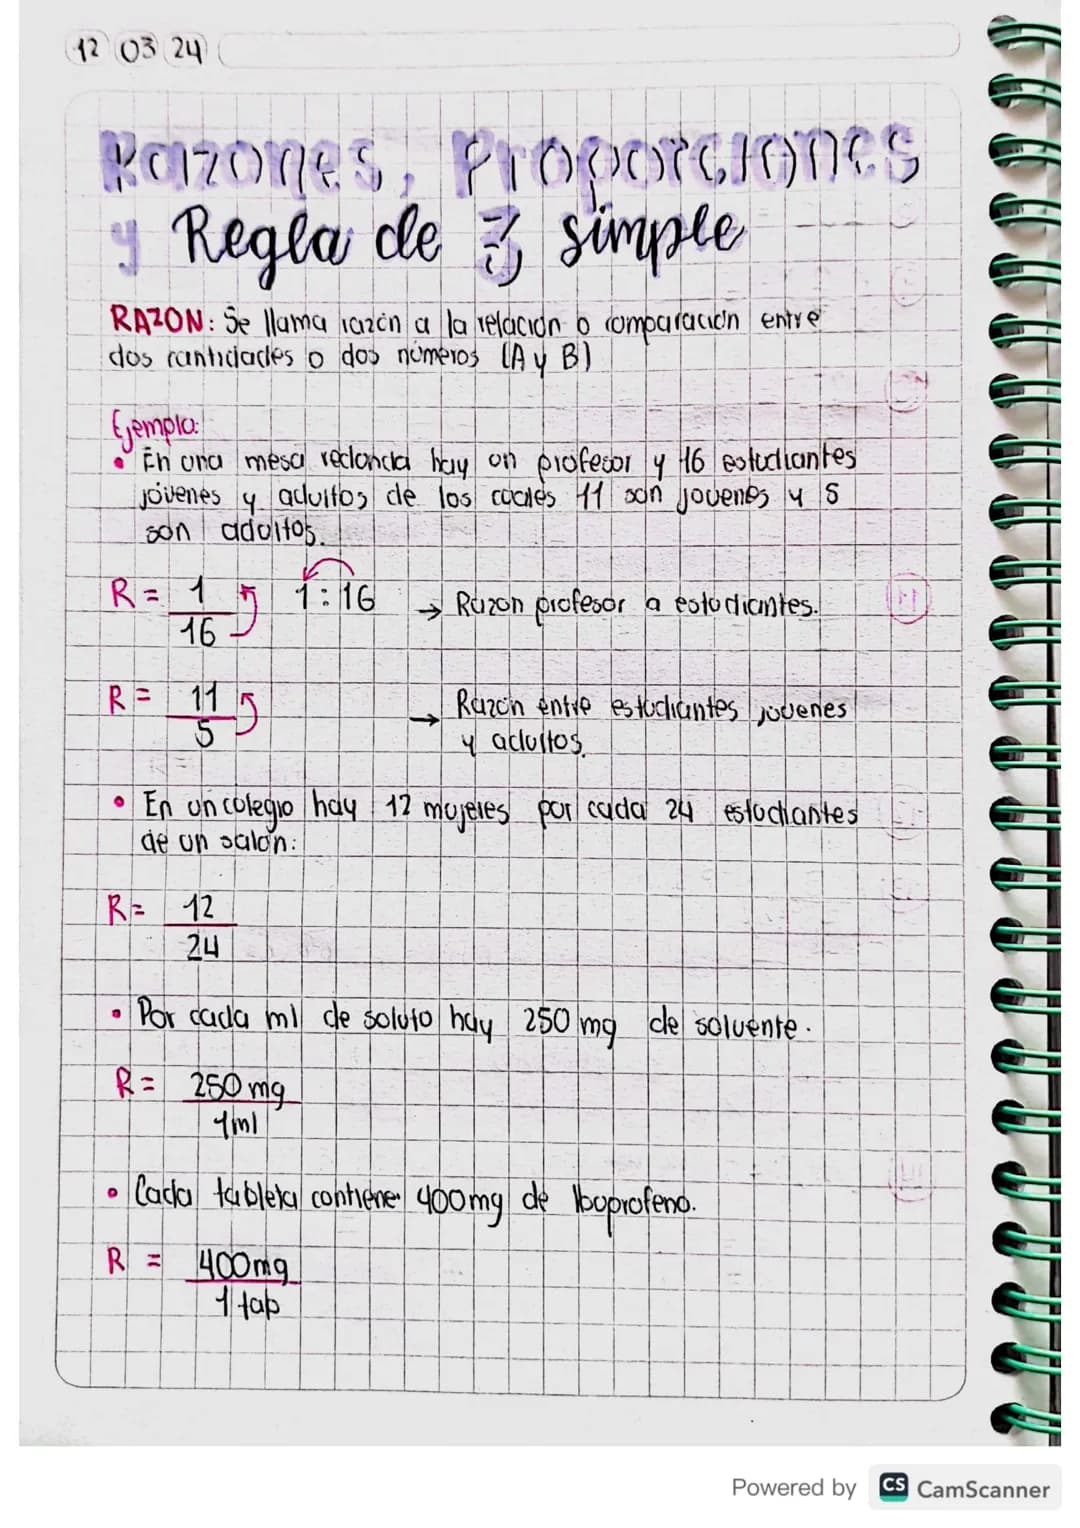 12 03 24
Razones, Proporciones
y Regla de 3 simple
RAZON: Se llama razón a la relación o comparación entre
dos cantidades o dos números (A y B)
Ejemplo:
• En una mesa redonda hay un profesor y 16 estudiantes
jóvenes y adultos de los cuales 11 son jovenes y 5
son adultos.
R = 1/16 1:16 → Razon profesor a estudiantes.
R = 11/5 → Razón entre estudiantes jovenes
y adultos.
• En un colegio hay 12 mujeres por cada 24 estudiantes
de un salón:
R= 12/24
• Por cada ml de soluto hay 250 mg de solvente.
R= 250 mg/1ml
• Cada tableta contiene 400mg de Ibuprofeno.
R = 400mg/1 tab
Powered by CS CamScanner